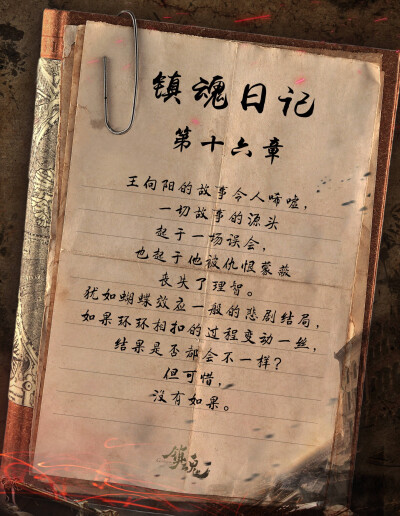 镇魂日记
第十六章
王向阳的故事令人唏嘘，
一切故事的源头
起于一场误会，
也起于他被仇恨蒙蔽
丧失了理智。
犹如蝴蝶效应一般的悲剧结局，
如果环环相扣的过程变动一丝，
结果是否都会不一样？
但可惜，
没有如果。
镇魂